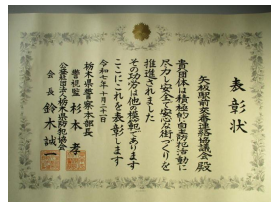 表彰状
矢板駅前交番連絡協議会殿
貴団体は積極的に自主防犯活動に
尽力し安全で安心な街づくりを
推進されました
その功労は他の模範であります
ここにこれを表彰します
令和七年十月二十一日
栃木県警察本部長
警視監 杉本孝
公益社団法人栃木県防犯協会
会長 鈴木誠一